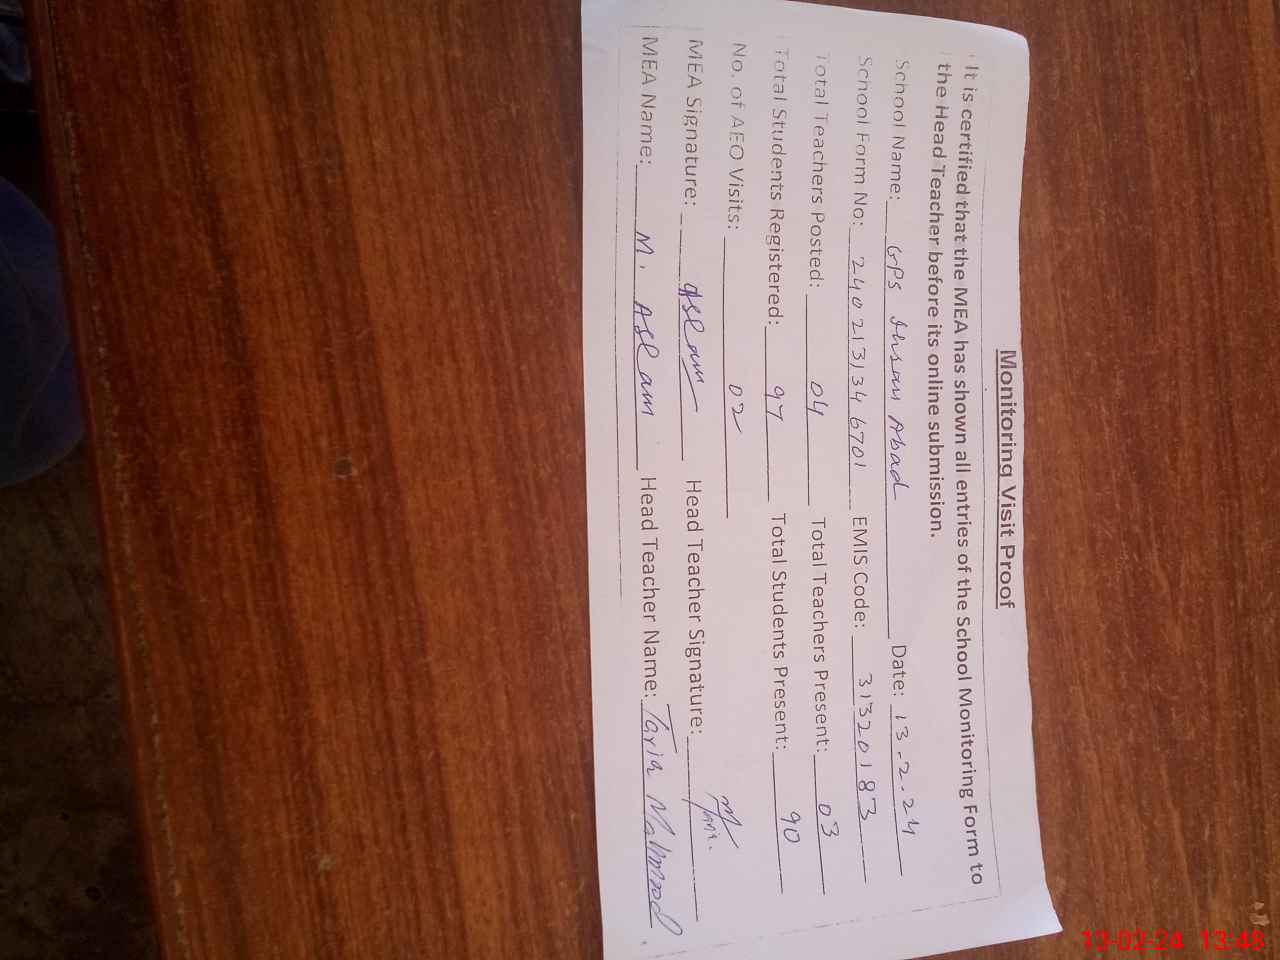 Monitoring Visit Proof
It is certified that the MEA has shown all entries of the School Monitoring Form to
the Head Teacher before its online submission.
School Name: GPS Ihsan Abad Date: 13-2-24
School Form No: 2402131346701 EMIS Code: 31320183
Total Teachers Posted: 04 Total Teachers Present: 03
Total Students Registered: 97 Total Students Present: 90
No. of AEO Visits: 02
MEA Signature: aslam Head Teacher Signature:
MEA Name: M. Aslam Head Teacher Name: Tariq Mahmood
13-02-24 13:48